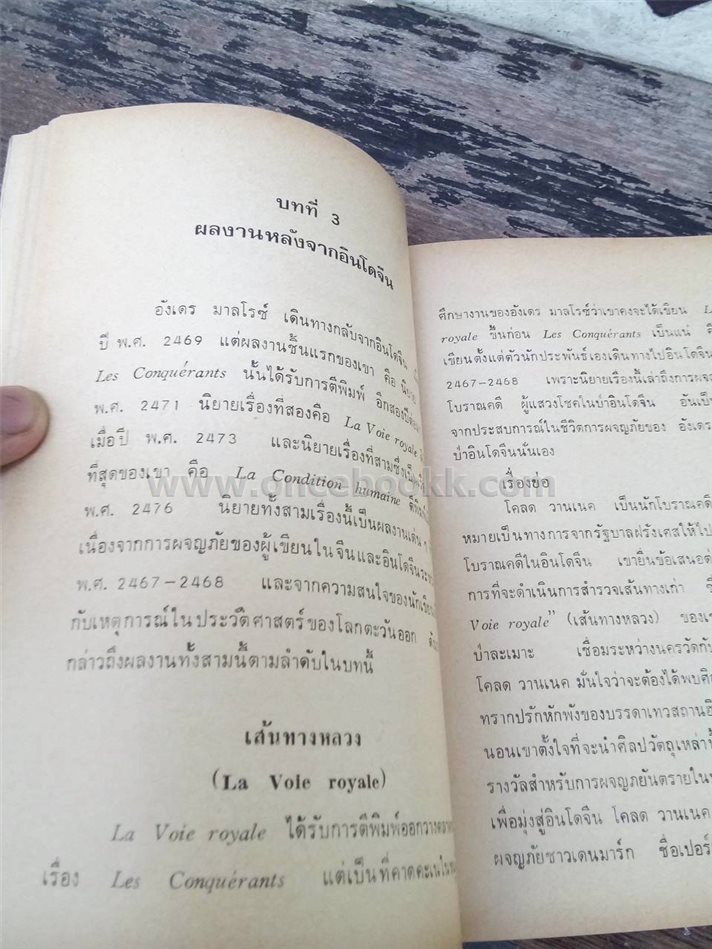 บทที่ 3
ผลงานหลังจากอินโดจีน
อังเดร มาลโรซ์ เดินทางกลับจากอินโดจีน
ปี พ.ศ. 2469 แต่ผลงานชิ้นแรกของเขา คือ
Les Conquérants นั้นได้รับการตีพิมพ์
พ.ศ. 2471 นิยายเรื่องที่สองคือ La Voie royale
เมื่อปี พ.ศ. 2473 และนิยายเรื่องที่สามซึ่งเป็น
ที่สุดของเขา คือ La Condition humaine
พ.ศ. 2476 นิยายทั้งสามเรื่องนี้เป็นผลงานเด่น
เนื่องจากการผจญภัยของผู้เขียนในจีนและอินโดจีน
พ.ศ. 2467-2468 และจากความสนใจของ
กับเหตุการณ์ในประวัติศาสตร์ของโลกตะวันออก
กล่าวถึงผลงานทั้งสามนี้ตามลำดับในบทนี้
เส้นทางหลวง
(La Voie royale)
La Voie royale ได้รับการตีพิมพ์ออกวาง
เรื่อง Les Conquérants แต่เป็นที่คาดคะเน
ศึกษางานของอังเดร มาลโรซ์ว่าเขาคงจะได้เขียน
royale ขึ้นก่อน Les Conquérants เป็นแน่
เขียนตั้งแต่ตัวนักประพันธ์เองเดินทางไปอินโดจีน
2467-2468 เพราะนิยายเรื่องนี้เล่าถึงการ
โบราณคดี ผู้แสวงโชคในป่าอินโดจีน อันเป็น
จากประสบการณ์ในชีวิตการผจญภัยของ อังเดร
ป่าอินโดจีนนั่นเอง
เรื่องย่อ
โคลด วานเนค เป็นนักโบราณคดี
หมายเป็นทางการจากรัฐบาลฝรั่งเศสให้ไป
โบราณคดีในอินโดจีน เขายื่นข้อเสนอ
การที่จะดำเนินการสำรวจเส้นทางเก่า
Voie royale" (เส้นทางหลวง) ของ
ป่าละเมาะ เชื่อมระหว่างนครวัดกับ
โคลด วานเนค มั่นใจว่าจะต้องได้พบ
ทรากปรักหักพังของบรรดาเทวสถาน
นอนเขาตั้งใจที่จะนำศิลปวัตถุเหล่านี้
รางวัลสำหรับการผจญภยันตรายใน
เพื่อมุ่งสู่อินโดจีน โคลด วานเนค
ผจญภัยชาวเดนมาร์ก ชื่อเปอร์
www.oncebookk.com